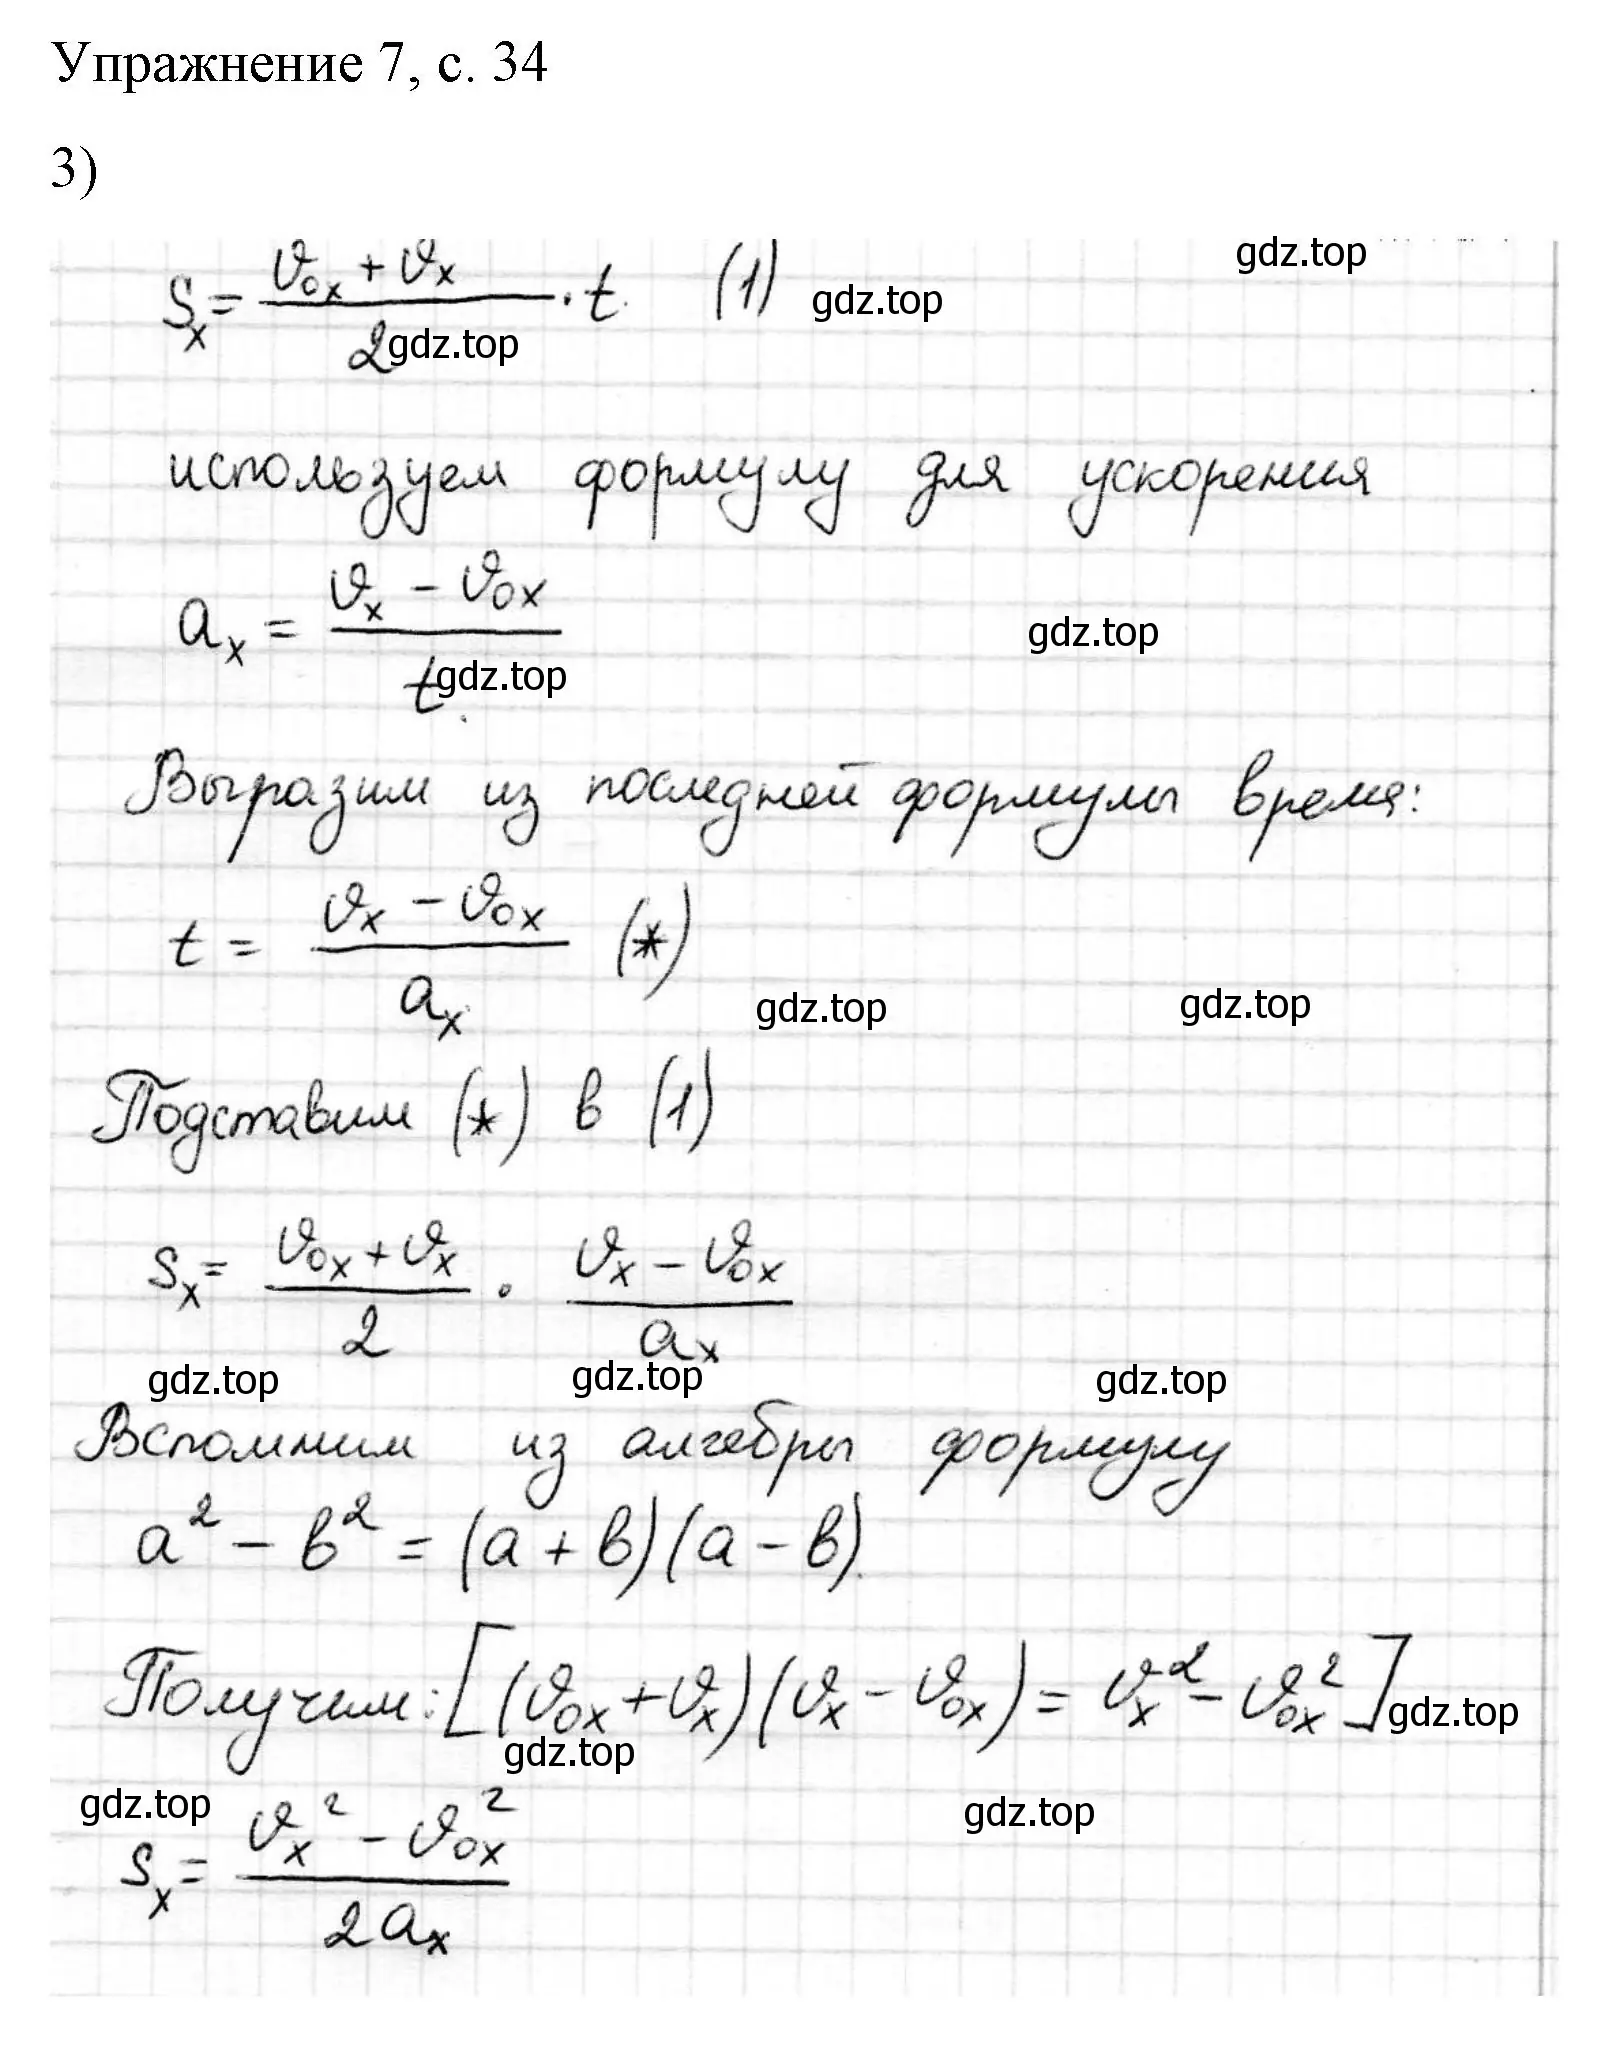 Упражнение 7, с. 34
3)
gdz.top
Sₓ = (ϑ₀ₓ + ϑₓ)/2 · t. (1) gdz.top
gdz.top
используем формулу для ускорения
aₓ = (ϑₓ − ϑ₀ₓ)/t gdz.top
gdz.top
Выразим из последней формулы время:
t = (ϑₓ − ϑ₀ₓ)/aₓ (*)
gdz.top gdz.top
Подставим (*) в (1)
Sₓ = (ϑ₀ₓ + ϑₓ)/2 · (ϑₓ − ϑ₀ₓ)/aₓ
gdz.top gdz.top gdz.top
Вспомним из алгебры формулу
a² − b² = (a + b)(a − b).
Получим: [(ϑ₀ₓ + ϑₓ)(ϑₓ − ϑ₀ₓ) = ϑₓ² − ϑ₀ₓ²] gdz.top
gdz.top
gdz.top gdz.top
Sₓ = (ϑₓ² − ϑ₀ₓ²)/2aₓ